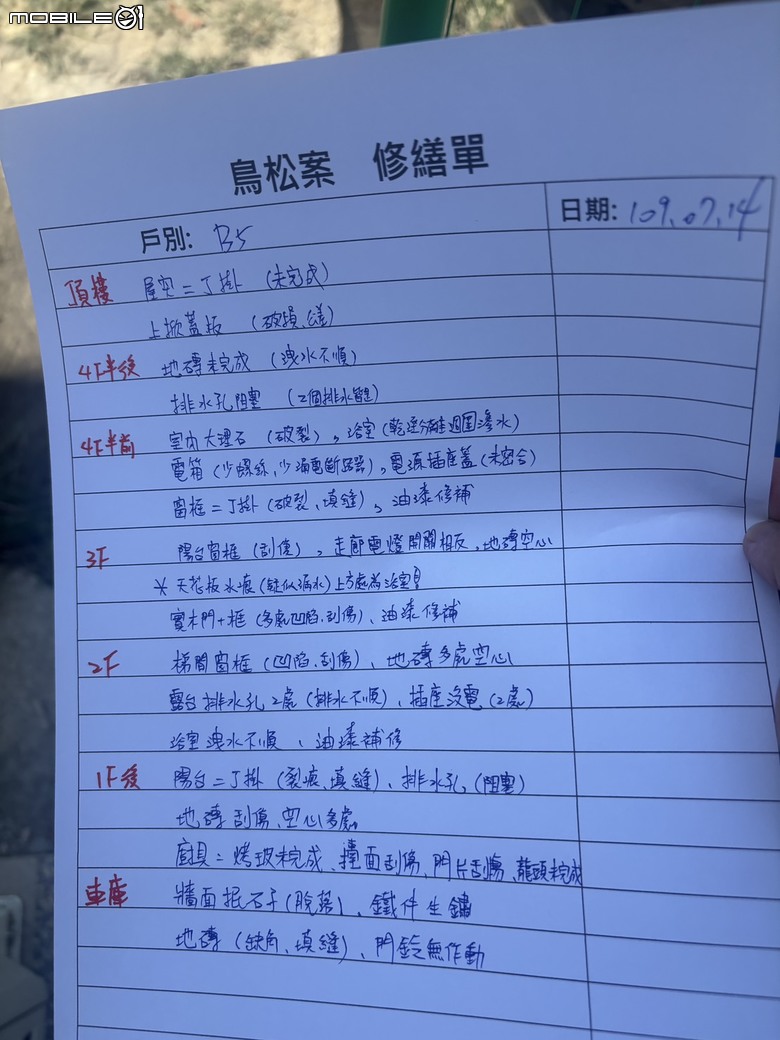 MOBILE01
鳥松案 修繕單
戶別: B5 日期: 109.07.14
頂樓 屋突二丁掛 (未完成)
上掀蓋板 (破損、)
4F半後 地磚未完成 (洩水不順)
排水孔阻塞 (2個排水管)
4F半前 室內大理石 (破裂)、浴室(乾溼分離週圍滲水)
電箱 (少螺絲、少漏電斷路器)、電源插座蓋(未密合)
窗框二丁掛 (破裂、填縫)、油漆修補
3F 陽台窗框 (刮傷)、走廊電燈開關相反、地磚空心
* 天花板水痕(疑似漏水)上方處為浴室
實木門+框 (多處凹陷、刮傷)、油漆修補
2F 梯間窗框 (凹陷、刮傷)、地磚多處空心
露台排水孔2處 (排水不順)、插座沒電(2處)
浴室洩水不順、油漆補修
1F後 陽台二丁掛 (裂痕、填縫)、排水孔、(阻塞)
地磚刮傷、空心多處
廚具=烤玻未完成、檯面刮傷、門片刮傷、龍頭未完成
車庫 牆面抿石子(脫落)、鐵件生鏽
地磚 (缺角、填縫)、門鈴無作動